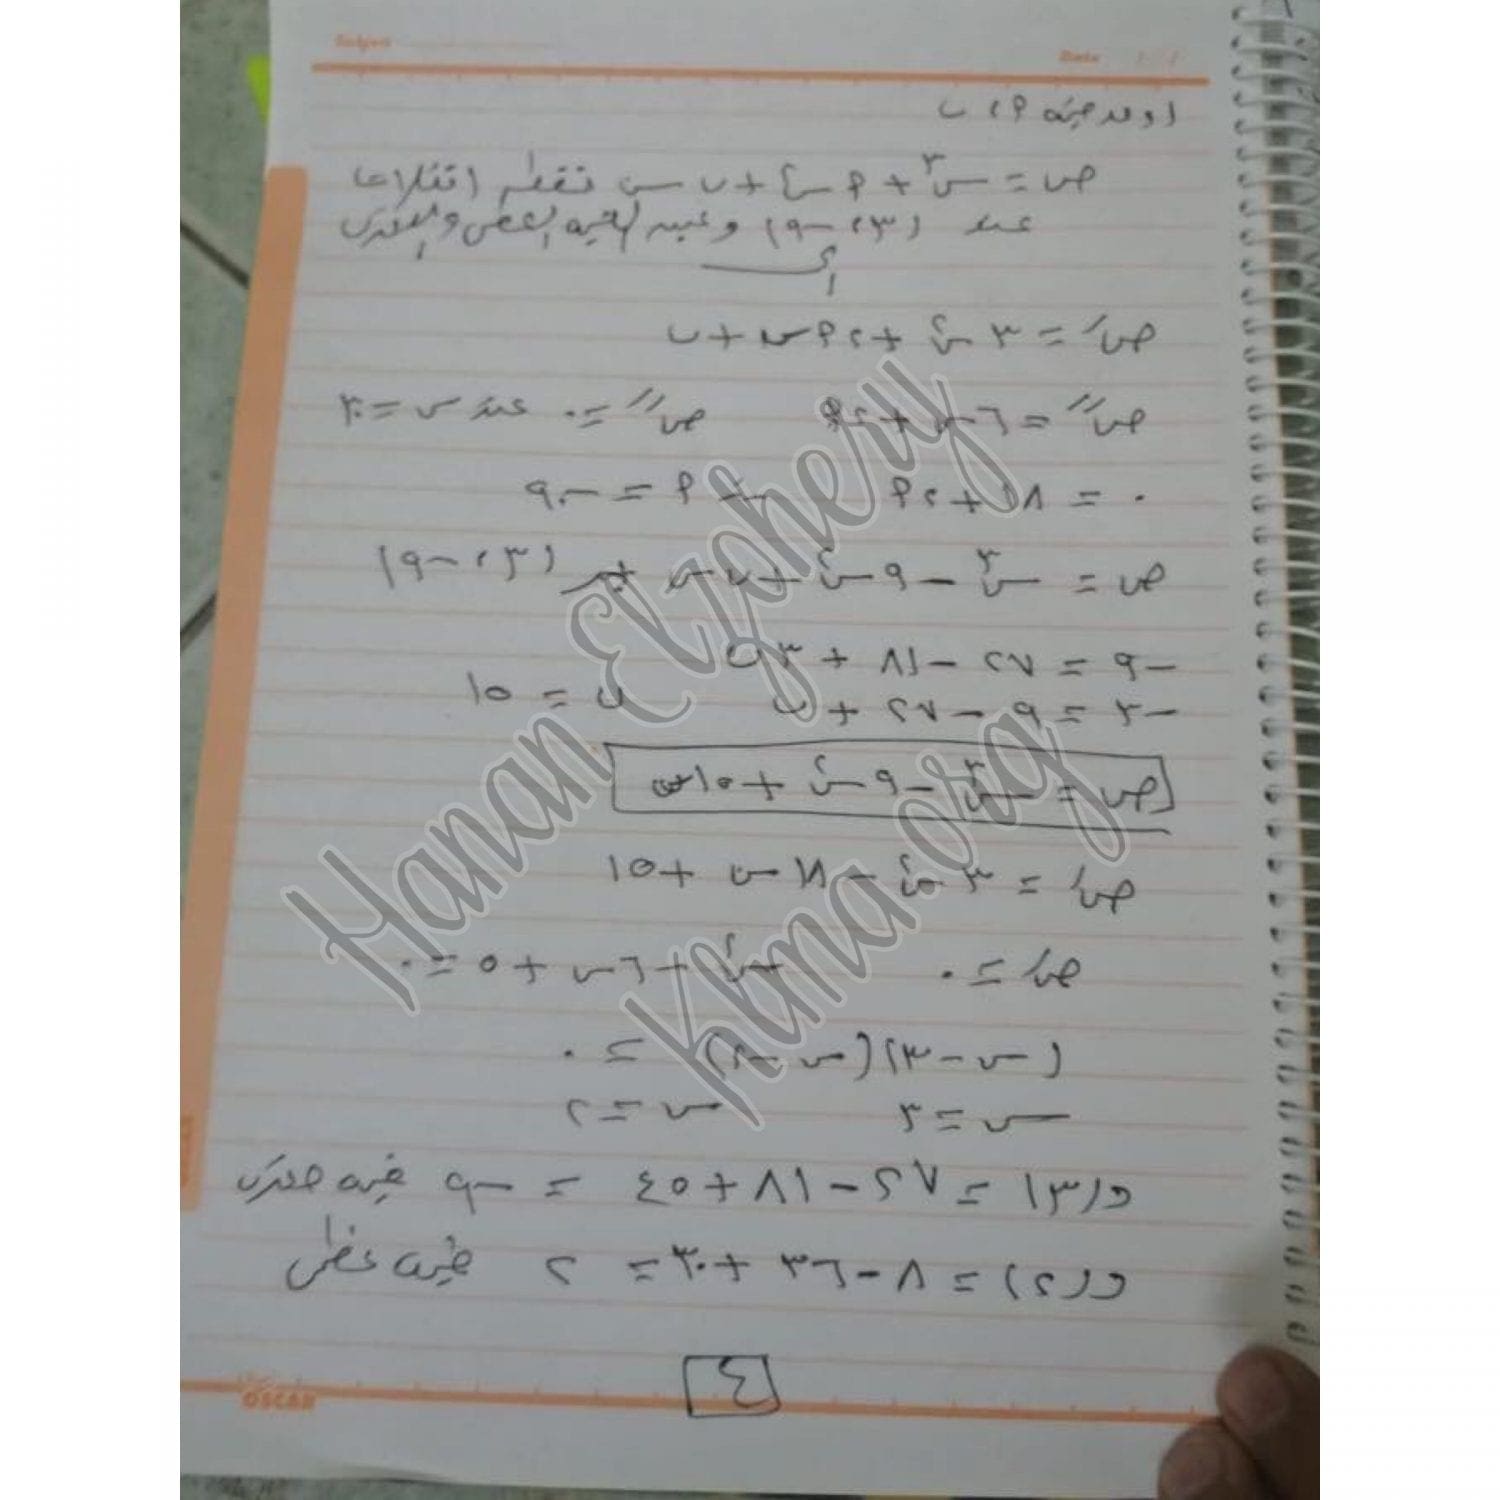 Subject
Date / /
اوجد قيمة أ ، ب
ص = س٣ + أ س٢ + ب س نقطة انقلاب
عند (٣، -٩) وعين القيم العظمى والصغرى
صَ = ٣ س٢ + ٢أس + ب
صً = ٦س + ٢أ صً = ٠ عند س = ٣
٠ = ١٨ + ٢أ ∴ أ = -٩
ص = س٣ - ٩س٢ + ب س (٣، -٩)
-٩ = ٢٧ - ٨١ + ٣ب
-٣ = ٩ - ٢٧ + ب ب = ١٥
ص = س٣ - ٩س٢ + ١٥س
صَ = ٣ س٢ - ١٨ س + ١٥
صَ = ٠ س٢ - ٦س + ٥ = ٠
(س - ٣)(س - ٢) = ٠
س = ٣ س = ٢
د(٣) = ٢٧ - ٨١ + ٤٥ = -٩ قيمة صغرى
د(٢) = ٨ - ٣٦ + ٣٠ = ٢ قيمة عظمى
٤
OSCAR
Hanan Elzohery
Kbna.org